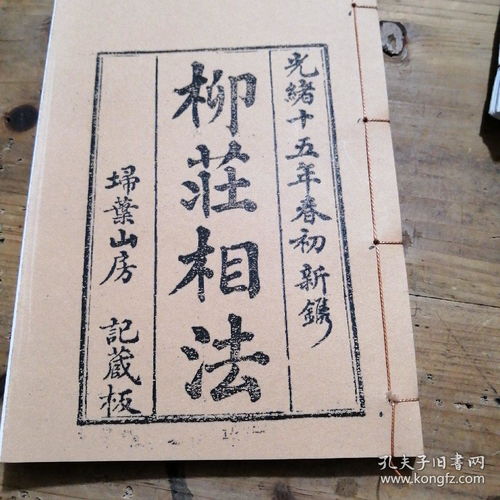 光緒十五年春初新鐫
柳莊相法
埽葉山房 記藏板
孔夫子旧书网
www.kongfz.com